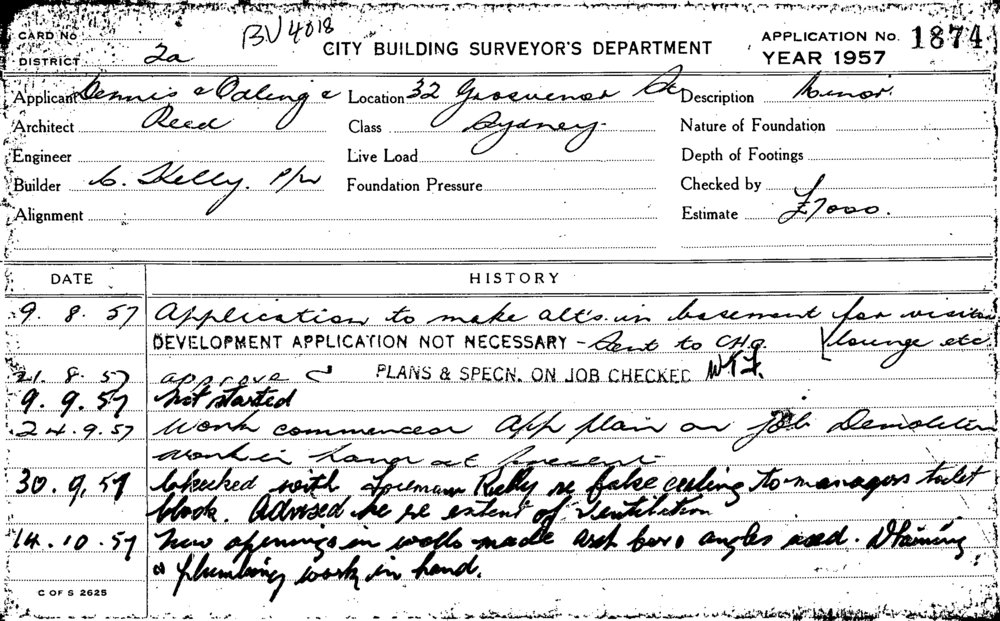 CARD No
BV4018
CITY BUILDING SURVEYOR'S DEPARTMENT
APPLICATION No. 1874
DISTRICT 2a
YEAR 1957
Applicant Dennis & Odling & Location 32 Grosvenor St Description Minor.
Architect Reed Class Sydney Nature of Foundation
Engineer Live Load Depth of Footings
Builder C. Kelly. P/W Foundation Pressure Checked by
Alignment Estimate £7000.
DATE HISTORY
9. 8. 57 Application to make alt's in basement for
DEVELOPMENT APPLICATION NOT NECESSARY - Sent to CHO lounge etc
21. 8. 57 approve PLANS & SPECN. ON JOB CHECKED
9. 9. 57 Not started
24.9.57 Work commenced App plan on job Demolition
work in hand at present
30.9.57 Checked with Foreman Kelly re false ceiling to managers toilet
block. Advised he re extent of ventilation
14.10.57 New openings in walls made and angles used. Draining
& plumbing work in hand.
C OF S 2625